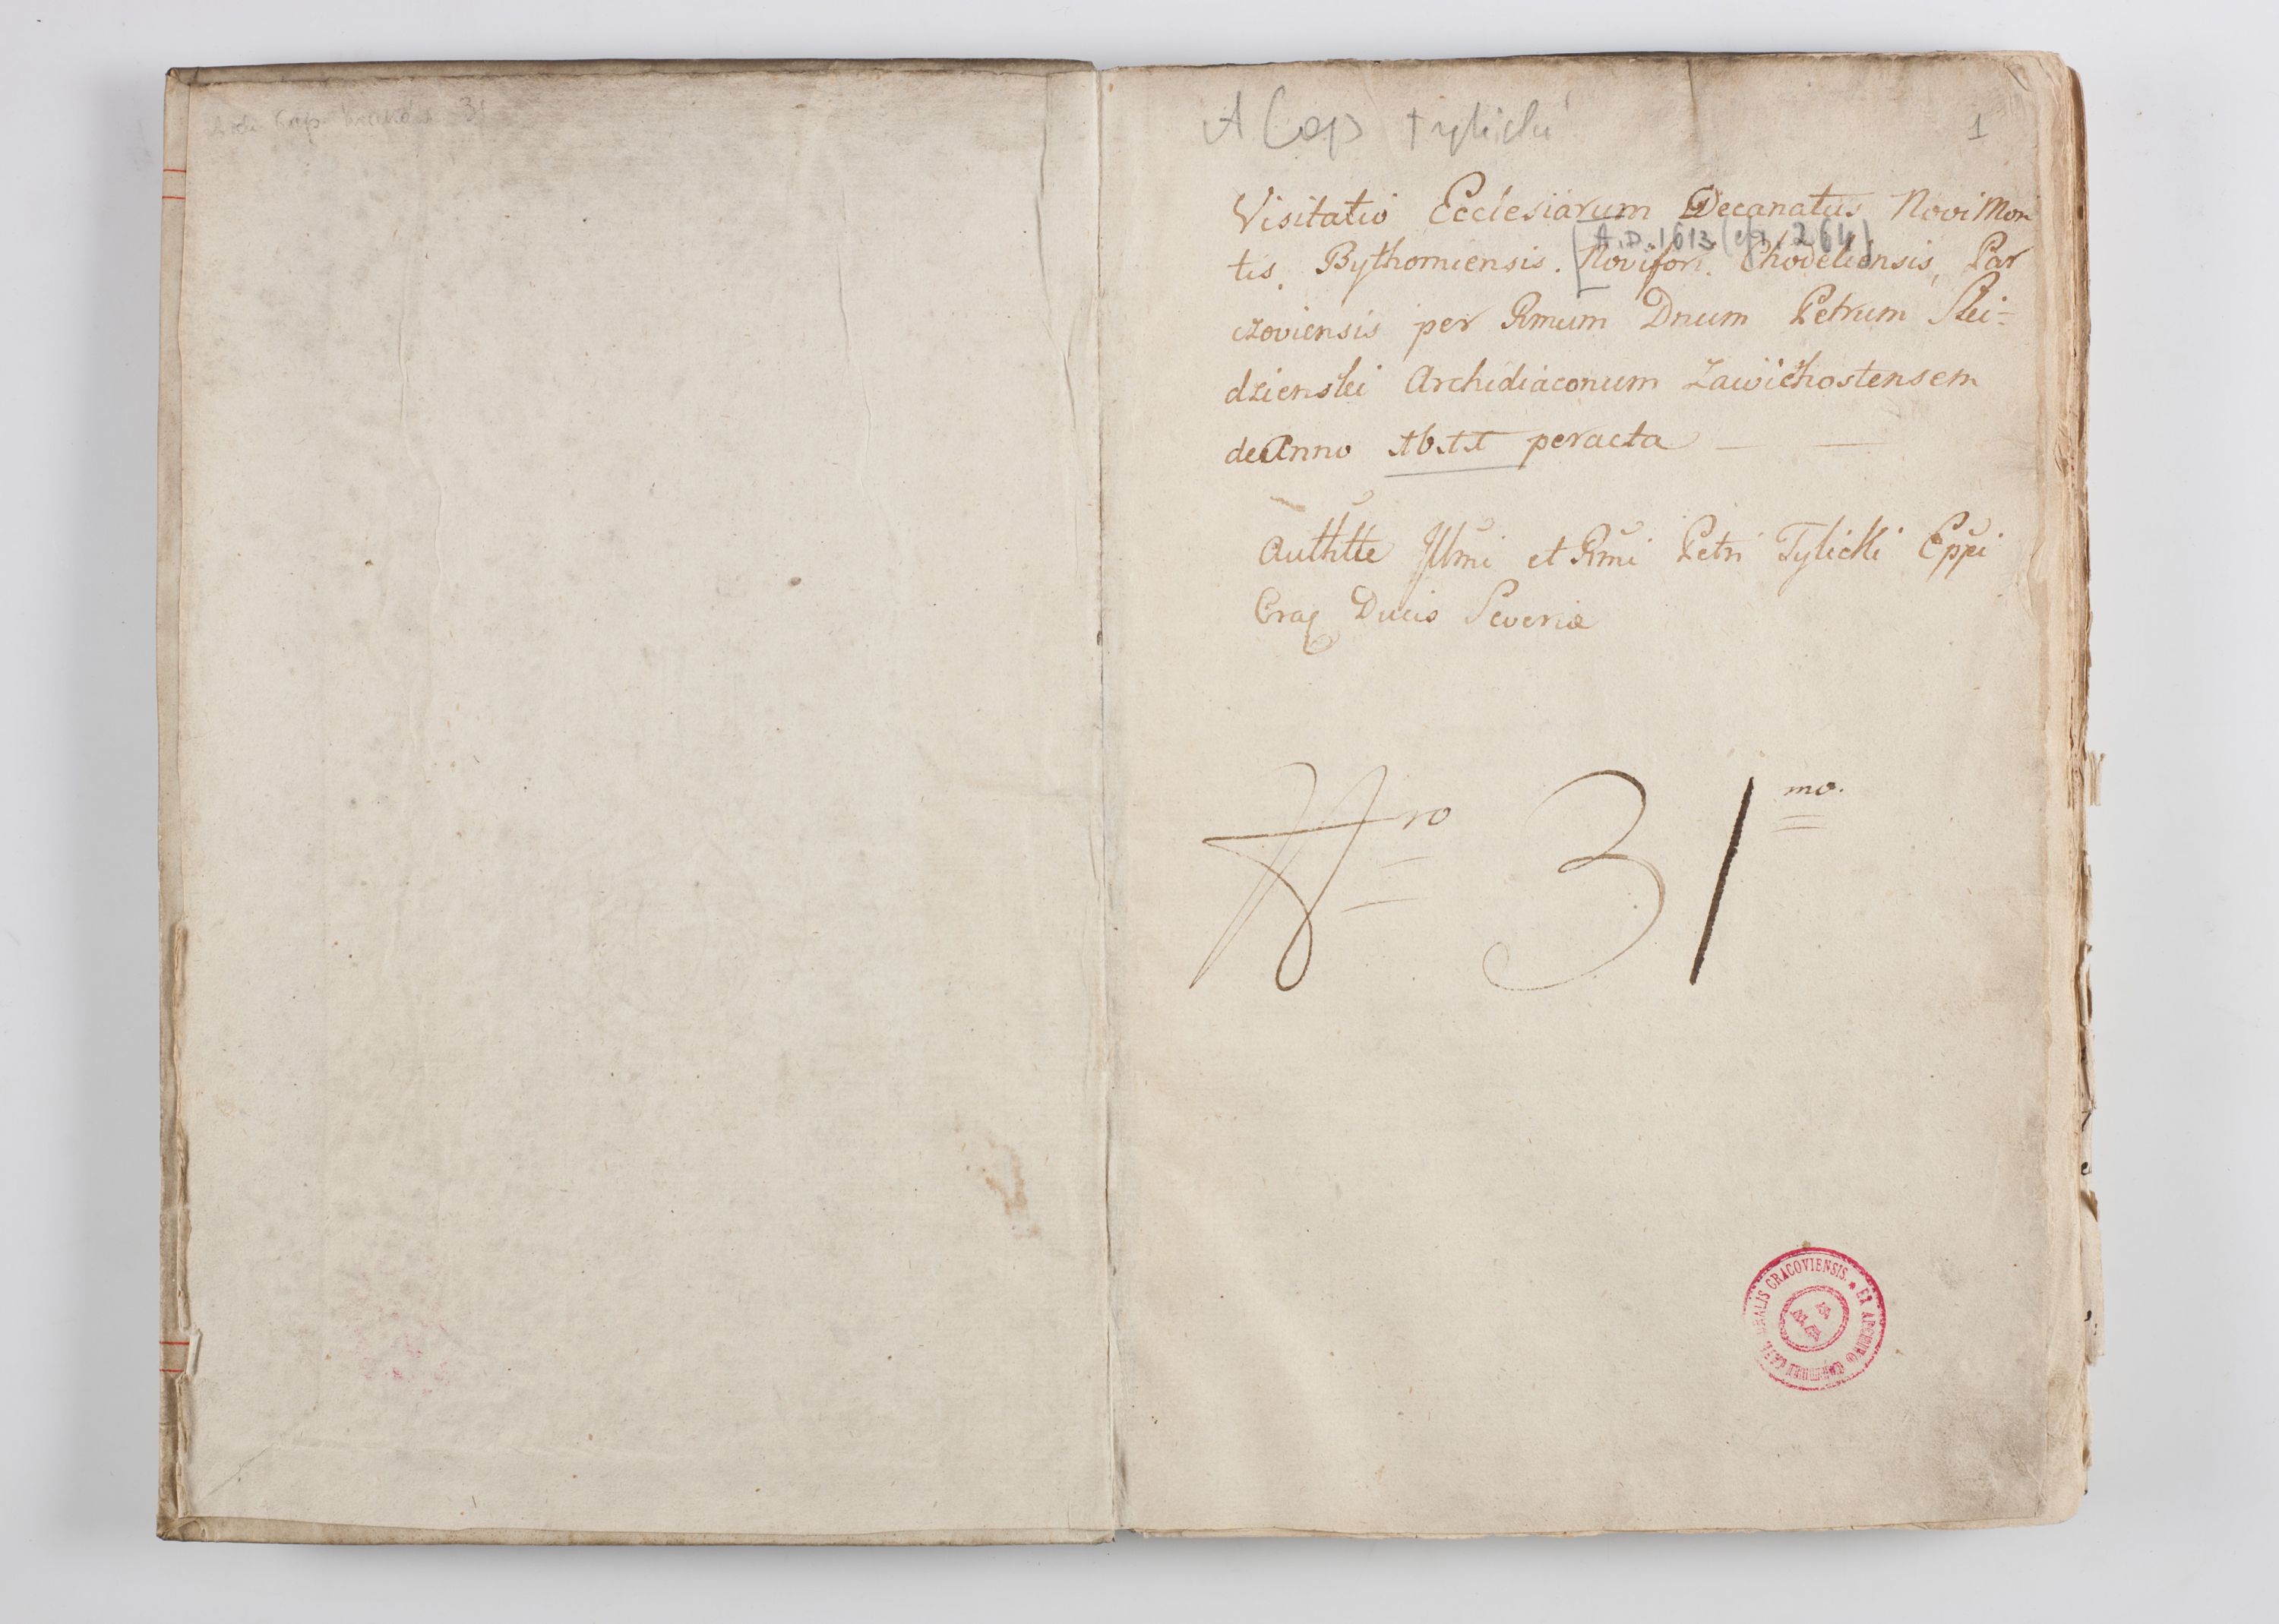 A Cap Tylicki
1
Visitatio Ecclesiarum Decanatus Novi Mon
A.D. 1613 264)
tis. Bythomiensis. Novifori. Chodeliensis, Par
czoviensis per Rmum Dnum Petrum Ski-
dzienski Archidiaconum Zawichostensem
de Anno 1611 peracta
Authtte Illmi et Rmi Petri Tylicki Eppi
Crac Ducis Severiæ
Nro 31mo.
CRACOVIENSIS. * EX ARCHIVO